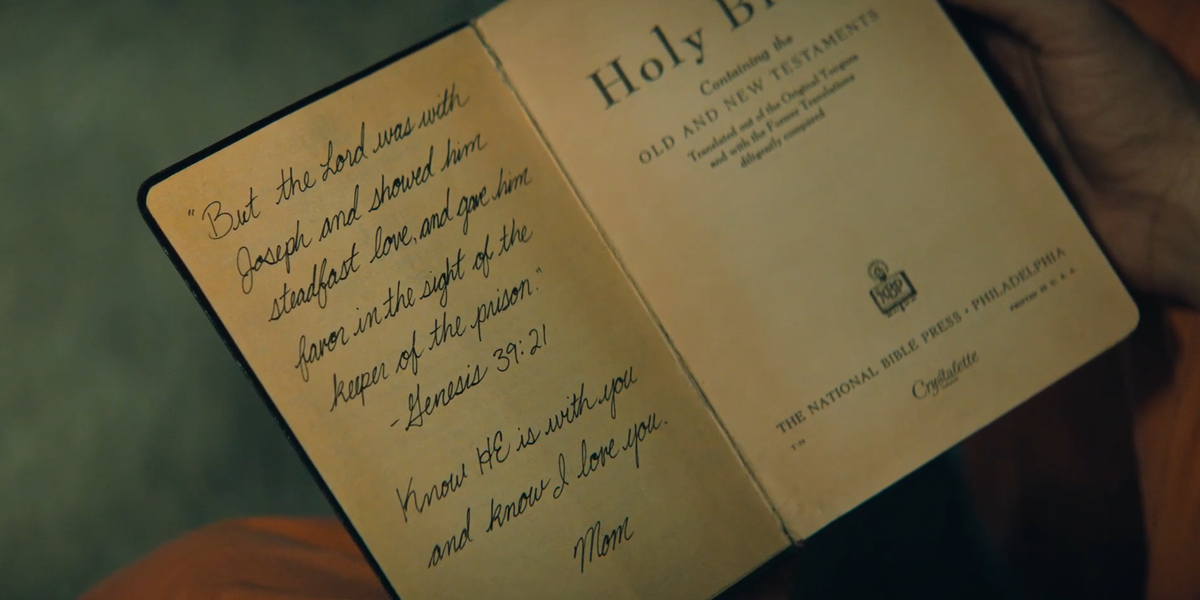 "But the Lord was with
Joseph and showed him
steadfast love, and gave him
favor in the sight of the
keeper of the prison."
- Genesis 39:21
Know HE is with you
and know I love you.
Mom
Holy
Containing the
OLD AND NEW TESTAMENTS
Translated out of the Original Tongues
and with the Former Translations
diligently compared
NBP
THE NATIONAL BIBLE PRESS • PHILADELPHIA
PRINTED IN U. S. A.
Crystalette